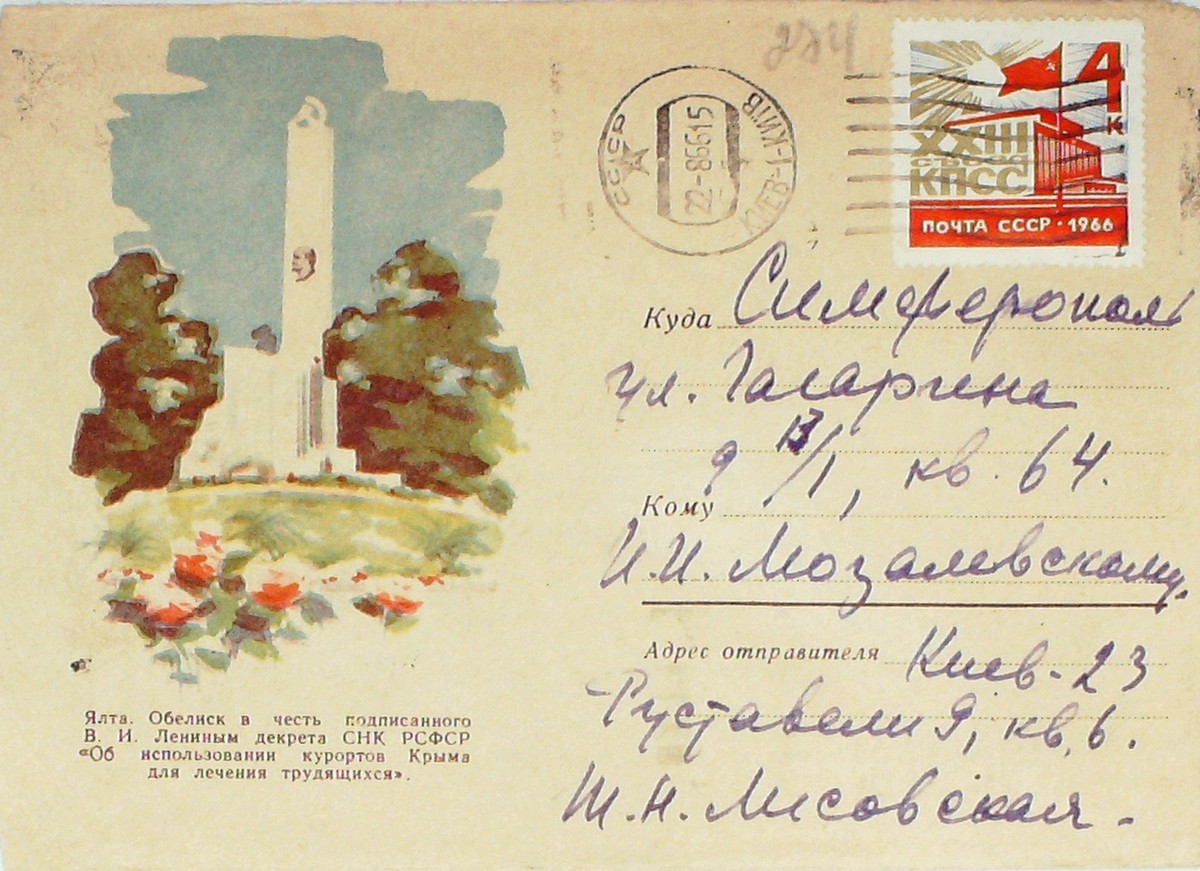 274
СССР
22-86615
КИЕВ-1-КИЇВ
4
К
XXIII
СЪЕЗД
КПСС
ПОЧТА СССР · 1966
Куда Симферополь
ул. Гагарина
д 13/1, кв. 64.
Кому
И.И. Мозалевскому.
Адрес отправителя Киев-23
Руставели 9, кв. 6.
Т.Н. Лисовская.
Ялта. Обелиск в честь подписанного
В. И. Лениным декрета СНК РСФСР
«Об использовании курортов Крыма
для лечения трудящихся».